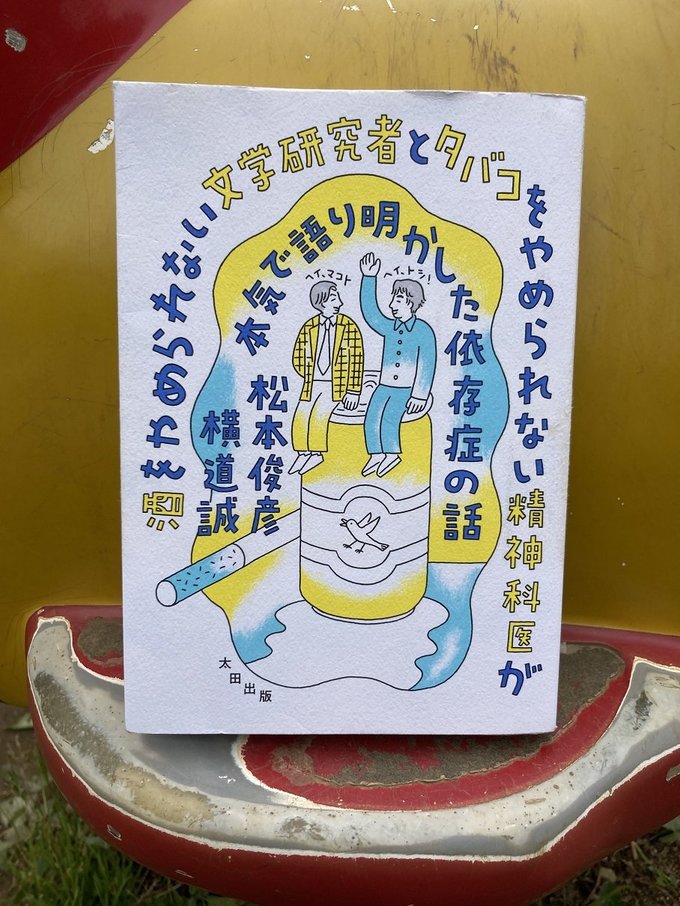 酒をやめられない文学研究者とタバコをやめられない精神科医が
本気で語り明かした依存症の話
ヘイ、マコト
ヘイ、トシ!
松本俊彦
横道誠
太田出版